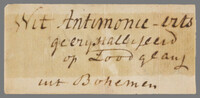 Wit Antimonie-erts
gecrystalliseerd
op Loodglans
uit Bohemen